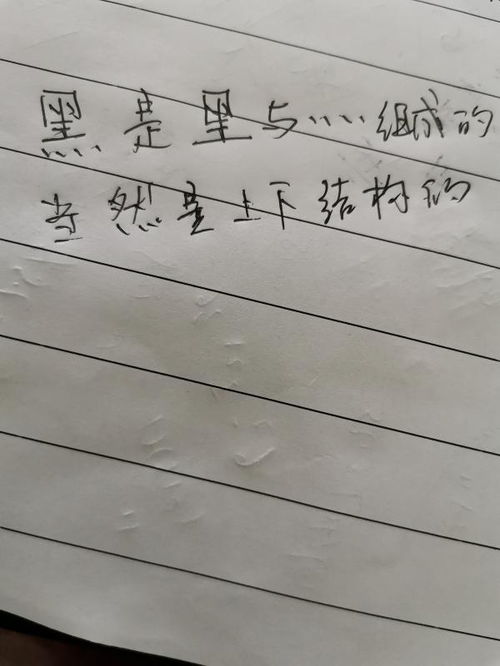 黑是里与灬组成的
当然是上下结构的